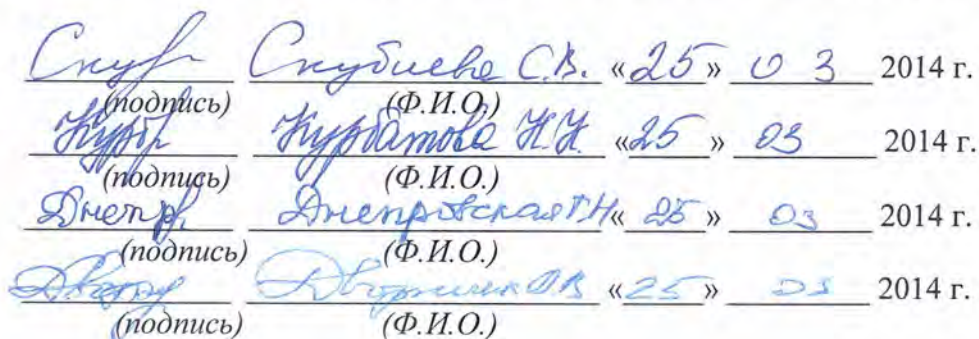 Скуб Скубиева С.В. «25» 03 2014 г.
(подпись) (Ф.И.О.)
Курб Курбатова Н.Н. «25» 03 2014 г.
(подпись) (Ф.И.О.)
Днепр Днепровская Г.Н. «25» 03 2014 г.
(подпись) (Ф.И.О.)
О.В. «25» 03 2014 г.
(подпись) (Ф.И.О.)